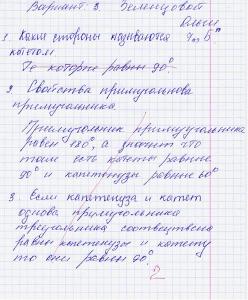 Вариант: 3. Зеленцовой
Ольги
1. Какие стороны называются 7 "Б"
катетом
Те которые равны 90°.
2. Свойства примугольнова
примуголника.
Примугольник примоуугулника
равен 180°, а значит что
тоже есть катеты равные
90° и капетнузы равные 60°
3. Если капетенуза и катет
однова примугольника
треуголника соотвецтвена
равны капетенузы и катету
то они равны 90°
2